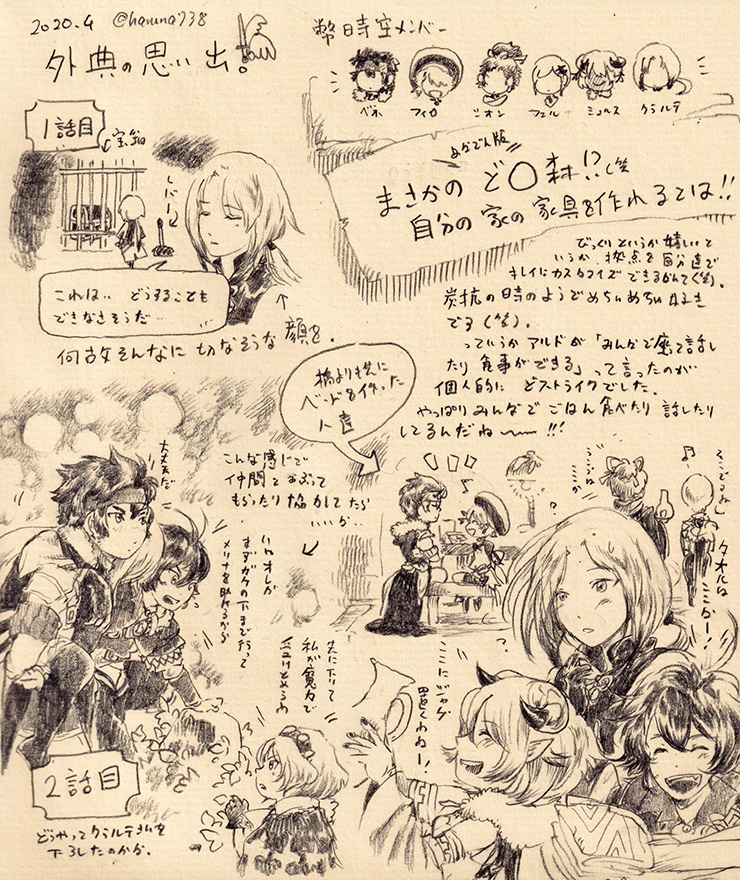 2020.4 @haruna738
外典の思い出。
幣時空メンバー
ベネ フィロ シオン フェル ミュルス クラルテ
1話目
宝箱
レバー
これは‥ どうすることも
できなさそうだ…
何故そんなに 切なそうな 顔を。
あなでん版
まさかの ど〇森!?(笑
自分の家の家具を作れるとは!!
びっくりというか嬉しいと
いうか 拠点を自分達で
キレイにカスタマイズできるなんて(笑)。
炭抗の時のようでめちゃめちゃ好き
です(笑)。
っていうか アルドが「みんなで座って話し
たり 食事ができる」って言ったのが
個人的に どストライクでした。
やっぱりみんなで ごはん食べたり 話したり
してるんだね〜〜!!!
橋より先に
ベッドを作った
人達
大丈夫だ
こんな感じで
仲間とおぶって
もらったり 協力してたら
いいな‥
オレが
まずガケの下まで行って
メリナを助けるから
先に下りて
私が魔力で
受けとめるわ
タオルは
ここかなー!
ここに
置くわねー!
2話目
どうやってクラルテさんを
下ろしたのかな。